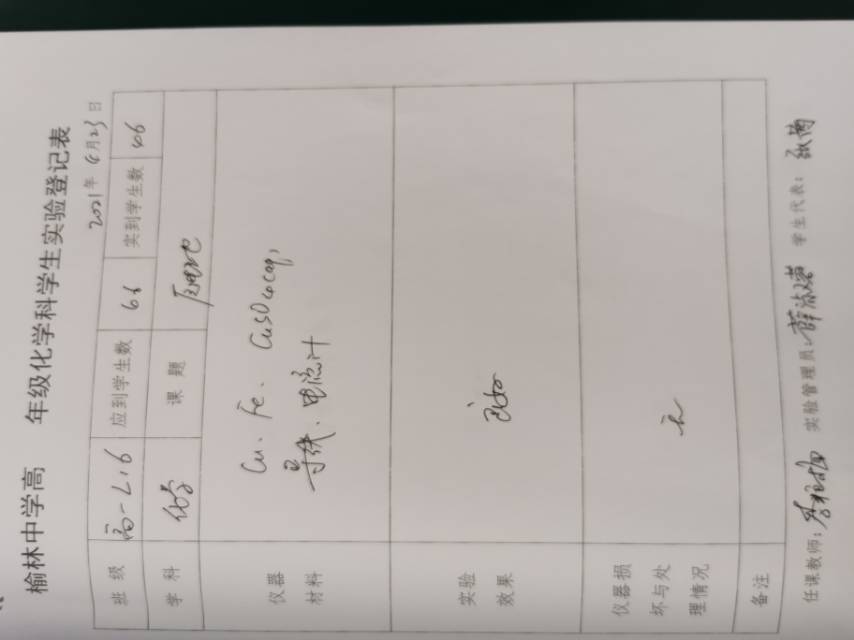 榆林中学高 年级化学科学生实验登记表
2021年6月23日
班级 高一2.16 应到学生数 66 实到学生数 66
学科 化学 课题 原电池
仪器 Cu、Fe、CuSO4(aq)、
材料 导线、电流计
实验
效果 良好
仪器损
坏与处
理情况 无
备注
任课教师: 实验管理员: 薛 学生代表: